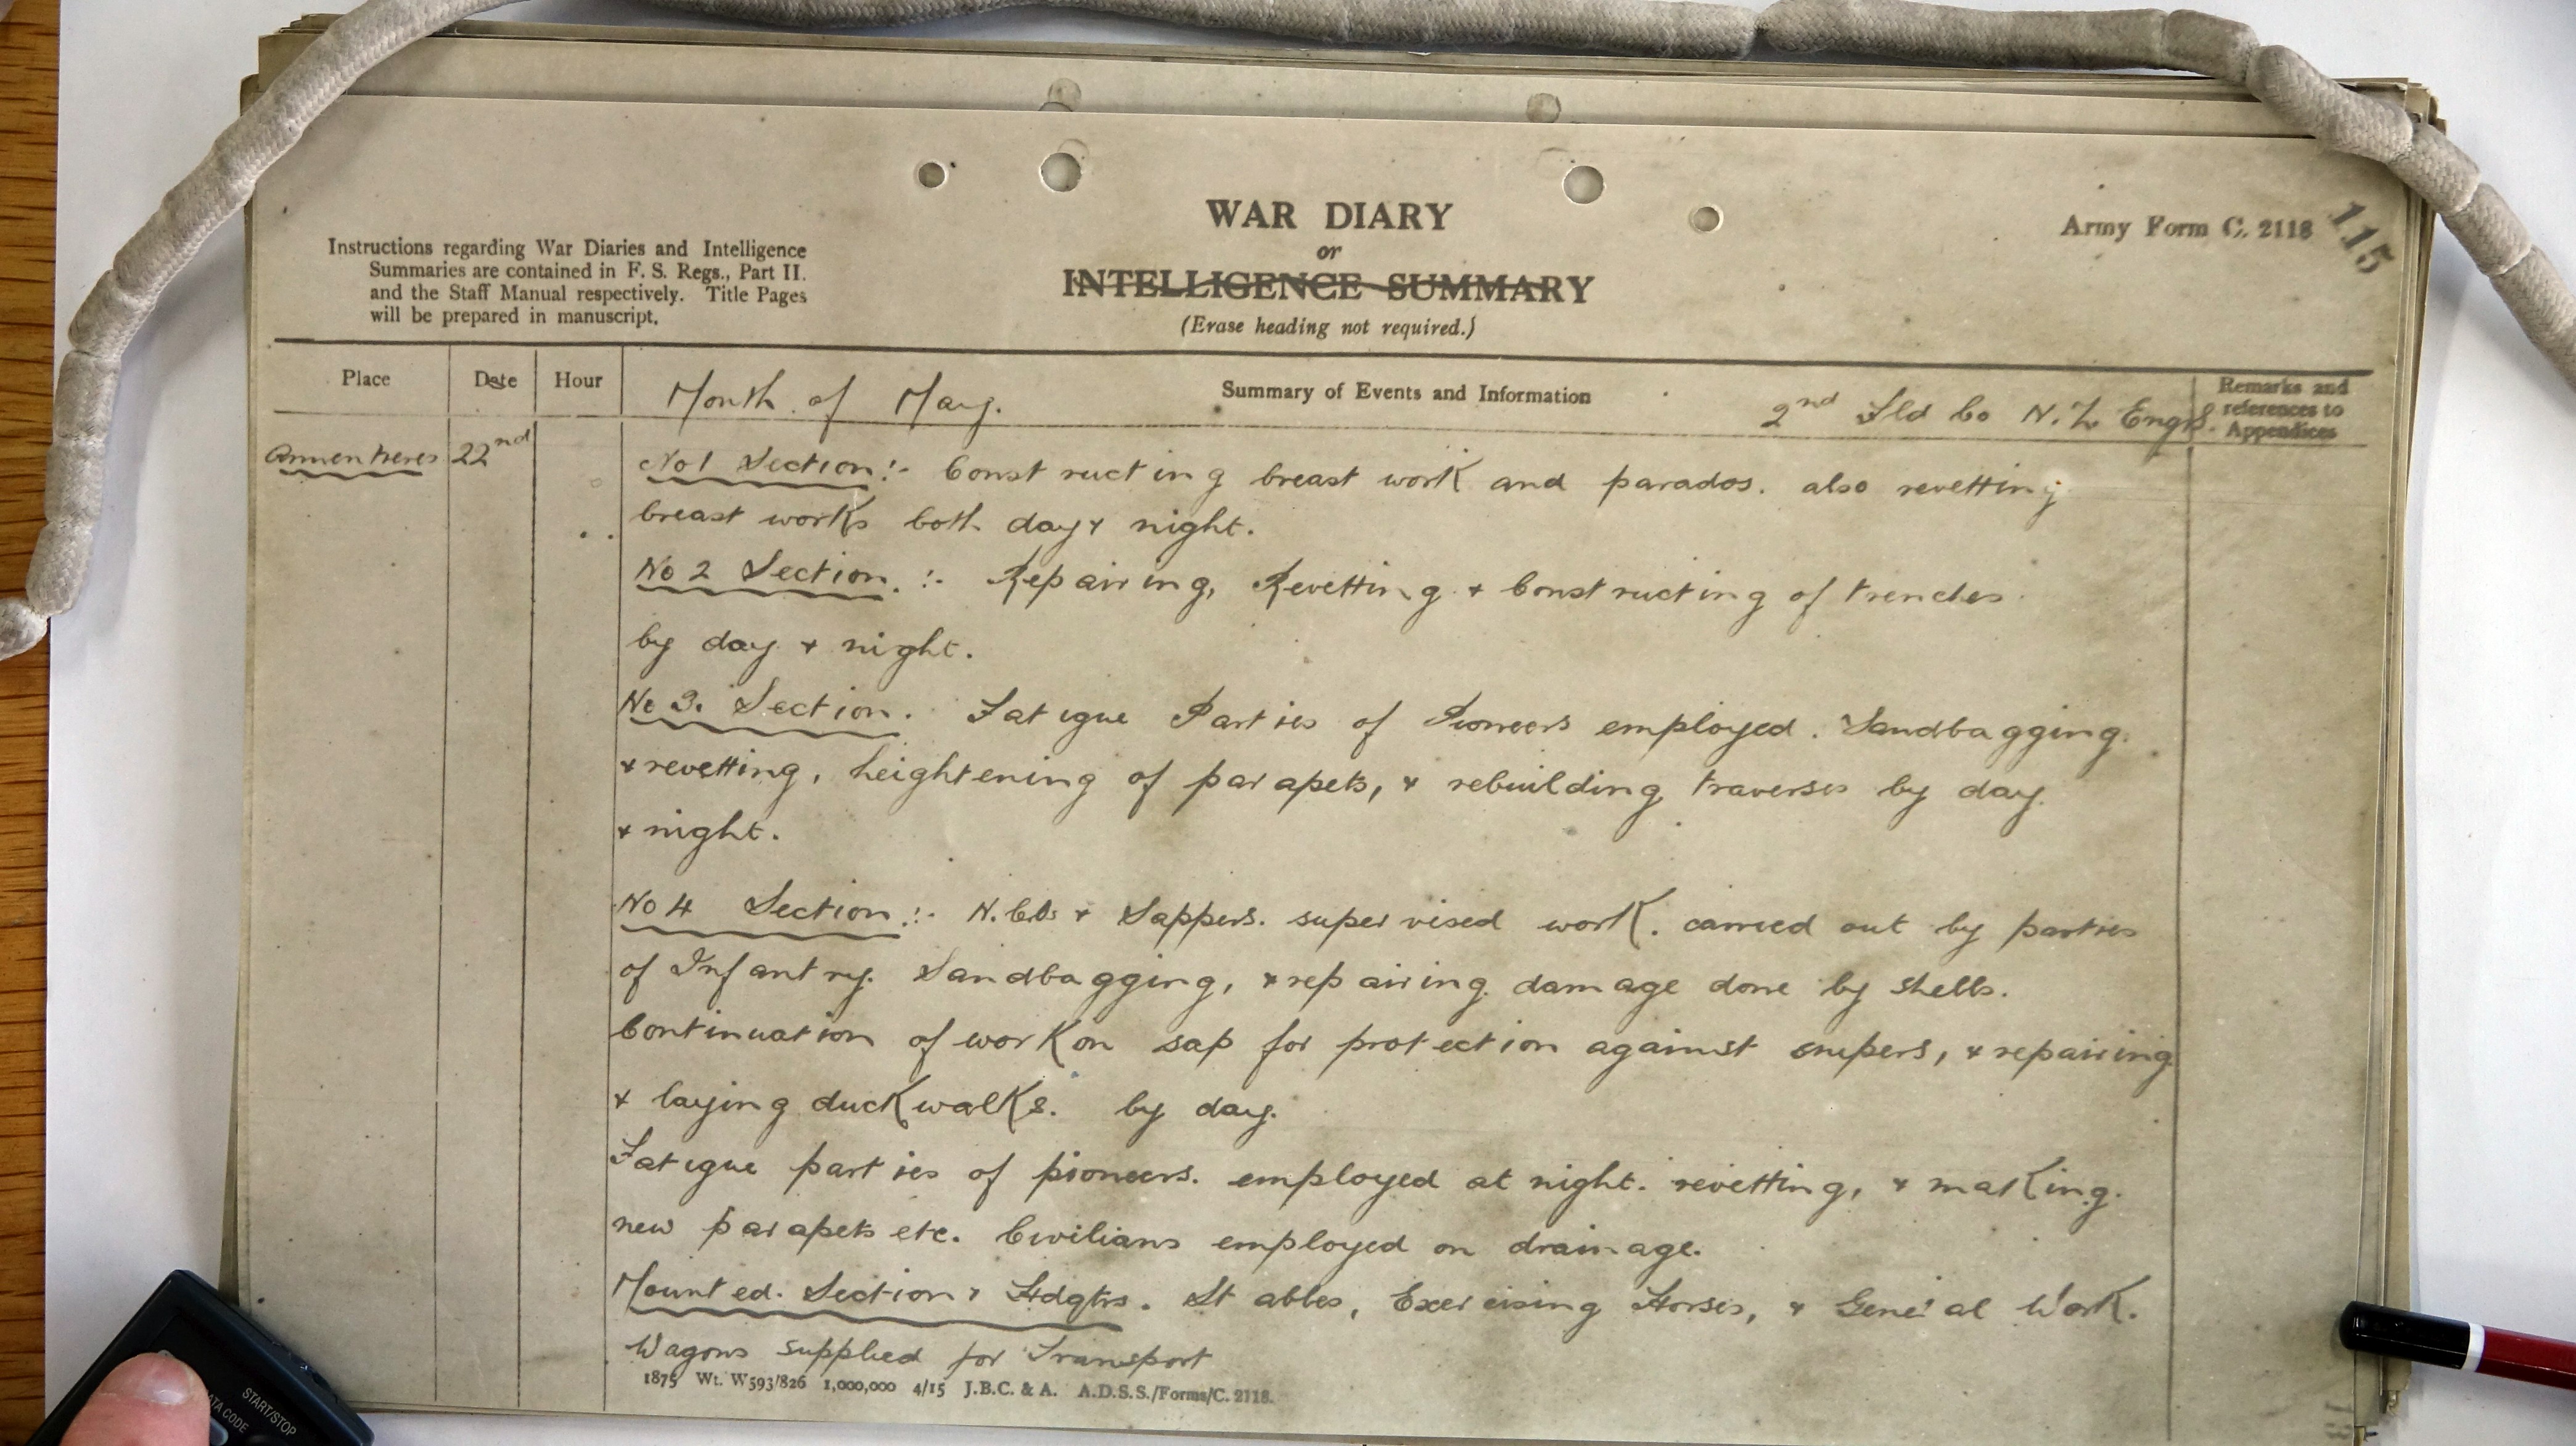 WAR DIARY
or
INTELLIGENCE SUMMARY
(Erase heading not required.)
Army Form C. 2118
115
Instructions regarding War Diaries and Intelligence
Summaries are contained in F. S. Regs., Part II.
and the Staff Manual respectively. Title Pages
will be prepared in manuscript.
Place Date Hour Summary of Events and Information Remarks and
references to
Appendices
Month of May. 2nd Fld Co N.Z. Engrs.
Armentieres 22nd No 1 Section:- Constructing breast work and parados. also revetting
breast works both day & night.
No 2 Section. :- Repairing, Revetting & Constructing of trenches
by day & night.
No 3. Section. Fatigue Parties of Pioneers employed. Sandbagging
& revetting, heightening of parapets, & rebuilding traverses by day
& night.
No 4 Section:- N.C.Os & Sappers. supervised work. carried out by parties
of Infantry. Sandbagging, & repairing damage done by shells.
Continuation of work on sap for protection against snipers, & repairing
& laying duckwalks. by day.
Fatigue parties of pioneers. employed at night. revetting, & making.
new parapets etc. Civilians employed on drainage.
Mounted. Section & Hdqtrs. Stables, Exercising Horses, & General Work.
Wagons supplied for Transport
1875 Wt. W593/826 1,000,000 4/15 J.B.C. & A. A.D.S.S./Forms/C. 2118.
START/STOP
DATA CODE